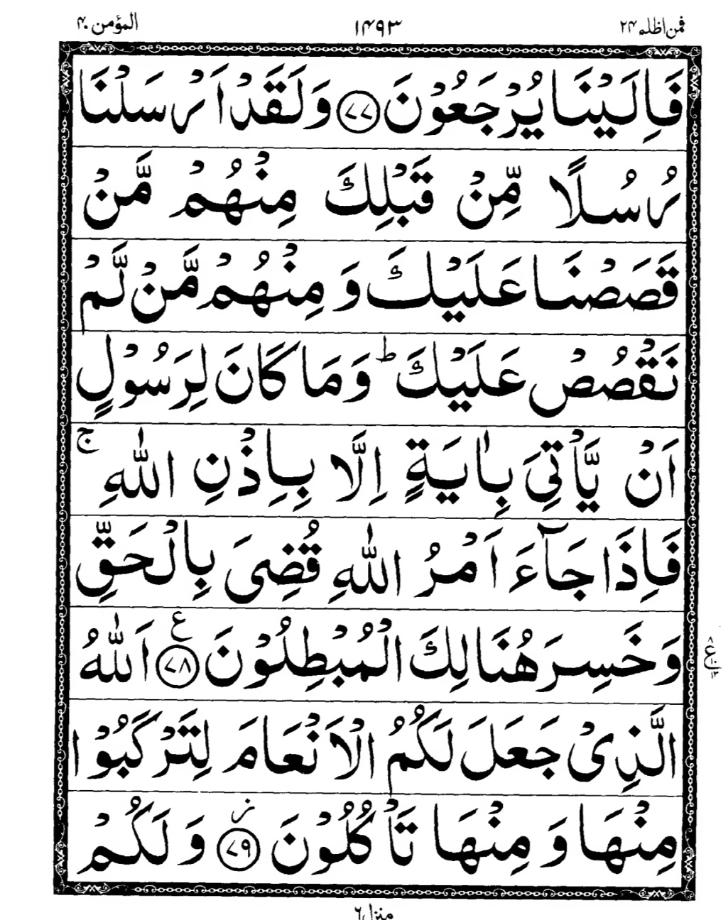 فمن اظلم ٢٤ ١٤٩٣ المؤمن ٤٠
فَاِلَيْنَا يُرْجَعُوْنَ ﴿٧٧﴾ وَلَقَدْ اَرْسَلْنَا
رُسُلًا مِّنْ قَبْلِكَ مِنْهُمْ مَّنْ
قَصَصْنَا عَلَيْكَ وَ مِنْهُمْ مَّنْ لَّمْ
نَقْصُصْ عَلَيْكَ ؕ وَمَا كَانَ لِرَسُوْلٍ
اَنْ يَّاْتِیَ بِاٰيَةٍ اِلَّا بِاِذْنِ اللّٰهِ ۚ
فَاِذَا جَآءَ اَمْرُ اللّٰهِ قُضِیَ بِالْحَقِّ
وَخَسِرَ هُنَالِكَ الْمُبْطِلُوْنَ ﴿٧٨﴾ ع اَللّٰهُ
الَّذِیْ جَعَلَ لَكُمُ الْاَنْعَامَ لِتَرْكَبُوْا
مِنْهَا وَ مِنْهَا تَاْكُلُوْنَ ﴿٧٩﴾ ز وَ لَكُمْ
٨
ع ١٠
١٣
منزل ٦